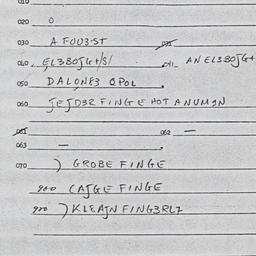 010
020 0
030 A FOUU3·ST 031
040 EL3BOJG+/S/ 041 AN EL3BOJG+
050 DALON83 OPOL
060 JEJD3R FINGE HOT ANUM3N
061 062 —
063 —
070 ) GROBE FINGE
900 CAJGE FINGE
900 ) KLEAJN FING3RL7